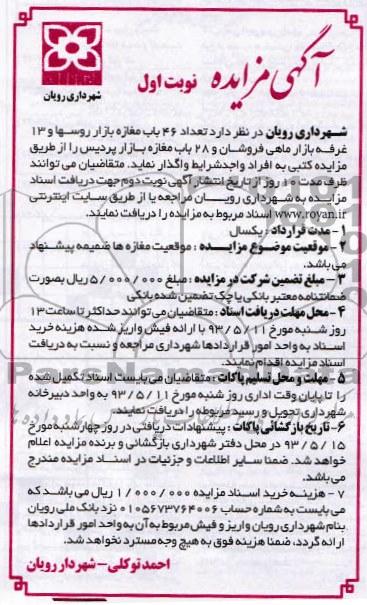 آگهی مزایده نوبت اول
شهرداری رویان
شهرداری رویان در نظر دارد تعداد ۴۶ باب مغازه بازار روسها و ۱۳
غرفه بازار ماهی فروشان و ۲۸ باب مغازه بازار پردیس را از طریق
مزایده کتبی به افراد واجدشرایط واگذار نماید. متقاضیان می توانند
ظرف مدت ۱۰ روز از تاریخ انتشار آگهی نوبت دوم جهت دریافت اسناد
مزایده به شهرداری رویان مراجعه یا از طریق سایت اینترنتی
www.royan.ir اسناد مربوط به مزایده را دریافت نمایند.
۱- مدت قرارداد : یکسال
۲- موقعیت موضوع مزایده : موقعیت مغازه ها ضمیمه پیشنهاد
می باشد.
۳- مبلغ تضمین شرکت در مزایده : مبلغ ۵/۰۰۰/۰۰۰ ریال بصورت
ضمانتنامه معتبر بانکی یا چک تضمین شده بانکی
۴- محل مهلت دریافت اسناد : متقاضیان می توانند حداکثر تا ساعت ۱۳
روز شنبه مورخ ۹۳/۵/۱۱ با ارائه فیش واریز شده هزینه خرید
اسناد به واحد امور قراردادها شهرداری مراجعه و نسبت به دریافت
اسناد مزایده اقدام نمایند.
۵- مهلت و محل تسلیم پاکات : متقاضیان می بایست اسناد تکمیل شده
را تا پایان وقت اداری روز شنبه مورخ ۹۳/۵/۱۱ به واحد دبیرخانه
شهرداری تحویل و رسید مربوطه را دریافت نمایند.
۶- تاریخ بازگشائی پاکات : پیشنهادات دریافتی در روز چهارشنبه مورخ
۹۳/۵/۱۵ در محل دفتر شهرداری بازگشائی و برنده مزایده اعلام
خواهد شد. ضمنا سایر اطلاعات و جزئیات در اسناد مزایده مندرج
می باشد.
۷- هزینه خرید اسناد مزایده ۱/۰۰۰/۰۰۰ ریال می باشد که
می بایست به شماره حساب ۰۱۰۵۶۷۳۷۶۴۰۰۶ نزد بانک ملی رویان
بنام شهرداری رویان واریز و فیش مربوط به آن به واحد امور قراردادها
ارائه گردد، ضمنا هزینه فوق به هیچ وجه مسترد نخواهد شد.
احمد توکلی - شهردار رویان